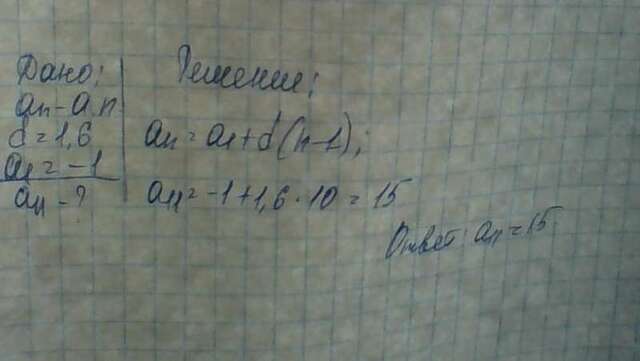 Дано:
an - а.п.
d = 1,6
a1 = -1
a11 - ?
Решение:
an = a1 + d(n-1);
a11 = -1 + 1,6 · 10 = 15
Ответ: a11 = 15